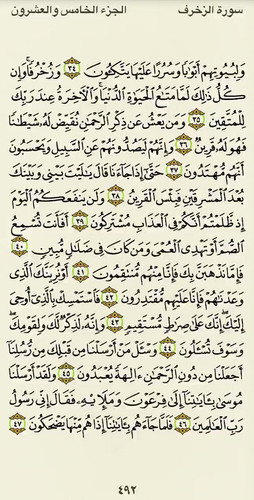 سورة الزخرف
الجزء الخامس والعشرون
وَلِبُيُوتِهِمْ أَبْوَٰبًا وَسُرُرًا عَلَيْهَا يَتَّكِـُٔونَ ٣٤ وَزُخْرُفًا ۚ وَإِن
كُلُّ ذَٰلِكَ لَمَّا مَتَـٰعُ ٱلْحَيَوٰةِ ٱلدُّنْيَا ۚ وَٱلْـَٔاخِرَةُ عِندَ رَبِّكَ
لِلْمُتَّقِينَ ٣٥ وَمَن يَعْشُ عَن ذِكْرِ ٱلرَّحْمَـٰنِ نُقَيِّضْ لَهُۥ شَيْطَـٰنًا
فَهُوَ لَهُۥ قَرِينٌ ٣٦ وَإِنَّهُمْ لَيَصُدُّونَهُمْ عَنِ ٱلسَّبِيلِ وَيَحْسَبُونَ
أَنَّهُم مُّهْتَدُونَ ٣٧ حَتَّىٰٓ إِذَا جَآءَنَا قَالَ يَـٰلَيْتَ بَيْنِى وَبَيْنَكَ
بُعْدَ ٱلْمَشْرِقَيْنِ فَبِئْسَ ٱلْقَرِينُ ٣٨ وَلَن يَنفَعَكُمُ ٱلْيَوْمَ
إِذ ظَّلَمْتُمْ أَنَّكُمْ فِى ٱلْعَذَابِ مُشْتَرِكُونَ ٣٩ أَفَأَنتَ تُسْمِعُ
ٱلصُّمَّ أَوْ تَهْدِى ٱلْعُمْىَ وَمَن كَانَ فِى ضَلَـٰلٍ مُّبِينٍ ٤٠
فَإِمَّا نَذْهَبَنَّ بِكَ فَإِنَّا مِنْهُم مُّنتَقِمُونَ ٤١ أَوْ نُرِيَنَّكَ ٱلَّذِى
وَعَدْنَـٰهُمْ فَإِنَّا عَلَيْهِم مُّقْتَدِرُونَ ٤٢ فَٱسْتَمْسِكْ بِٱلَّذِىٓ أُوحِىَ
إِلَيْكَ ۖ إِنَّكَ عَلَىٰ صِرَٰطٍ مُّسْتَقِيمٍ ٤٣ وَإِنَّهُۥ لَذِكْرٌ لَّكَ وَلِقَوْمِكَ ۖ
وَسَوْفَ تُسْـَٔلُونَ ٤٤ وَسْـَٔلْ مَنْ أَرْسَلْنَا مِن قَبْلِكَ مِن رُّسُلِنَآ
أَجَعَلْنَا مِن دُونِ ٱلرَّحْمَـٰنِ ءَالِهَةً يُعْبَدُونَ ٤٥ وَلَقَدْ أَرْسَلْنَا
مُوسَىٰ بِـَٔايَـٰتِنَآ إِلَىٰ فِرْعَوْنَ وَمَلَإِيْهِۦ فَقَالَ إِنِّى رَسُولُ
رَبِّ ٱلْعَـٰلَمِينَ ٤٦ فَلَمَّا جَآءَهُم بِـَٔايَـٰتِنَآ إِذَا هُم مِّنْهَا يَضْحَكُونَ ٤٧
٤٩٢